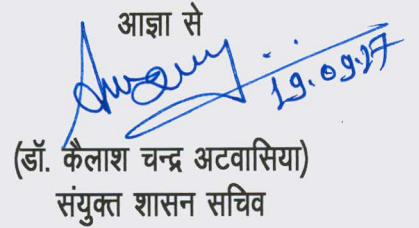 आज्ञा से
19.09.17
(डॉ. कैलाश चन्द्र अटवासिया)
संयुक्त शासन सचिव